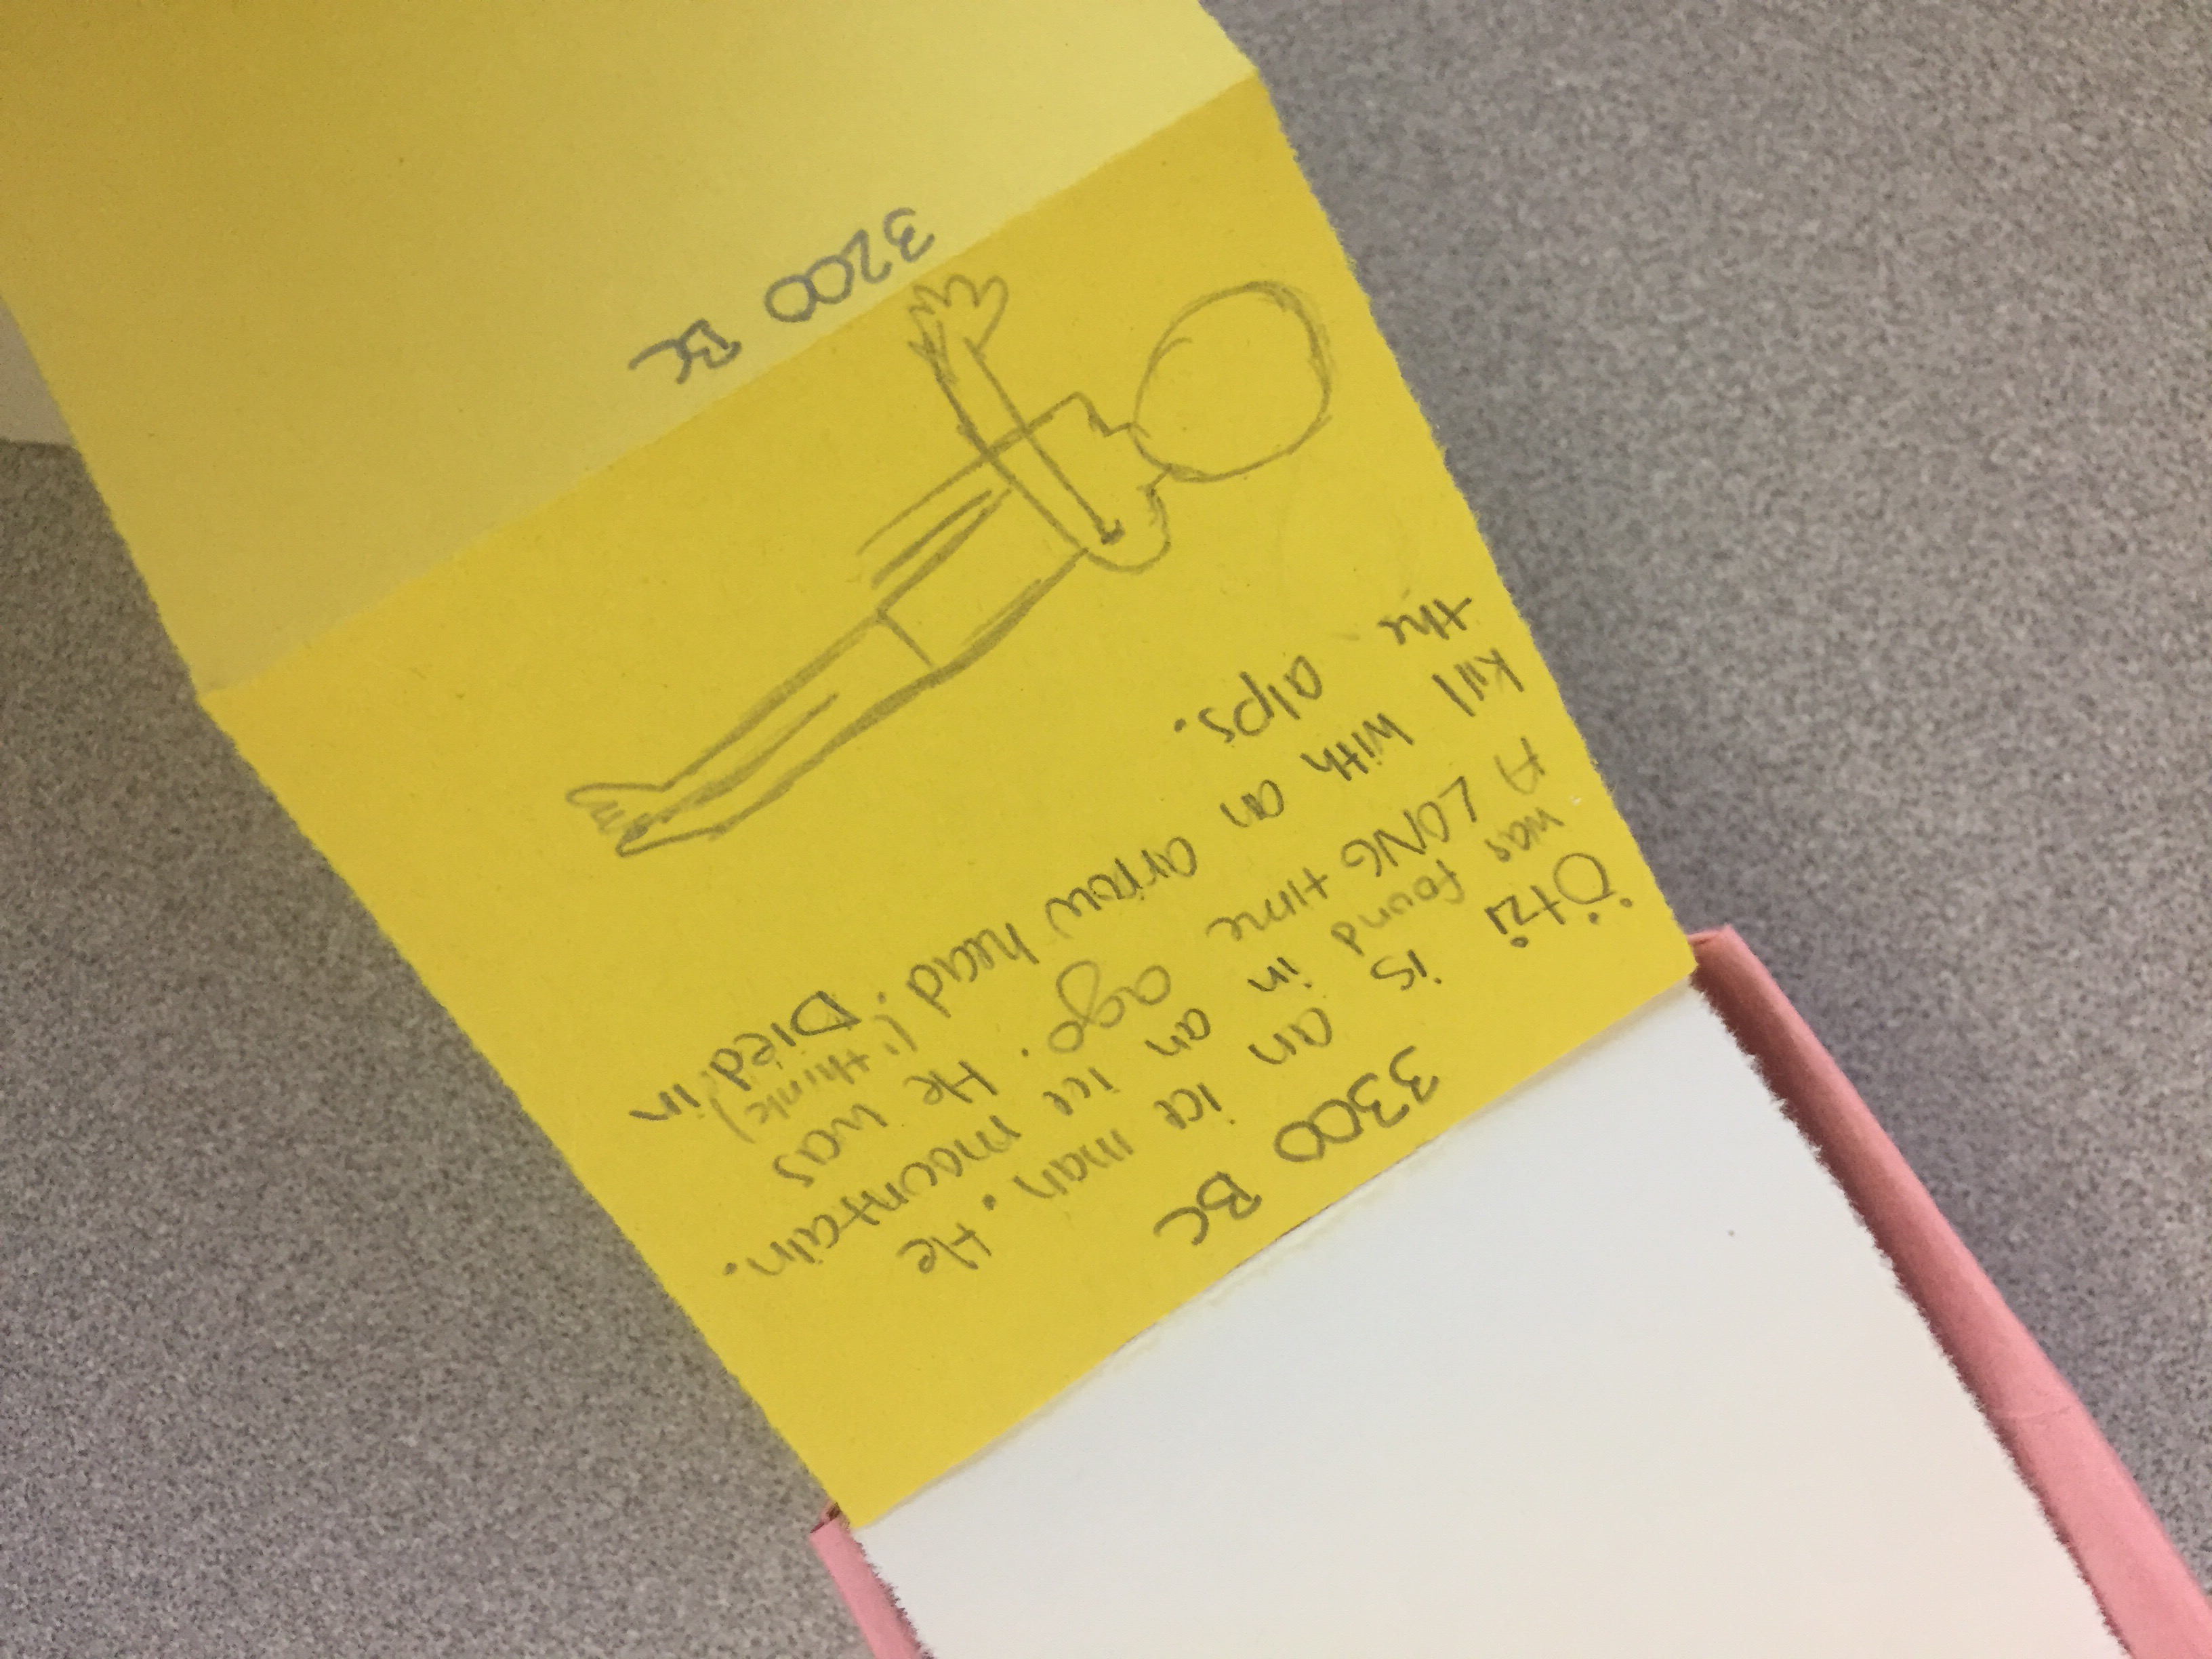 3300 BC
Ötzi is an ice man. He
was found in an ice mountain.
A LONG time ago. He was
kill with an arrow head. (i think) Died in
the alps.
3200 BC